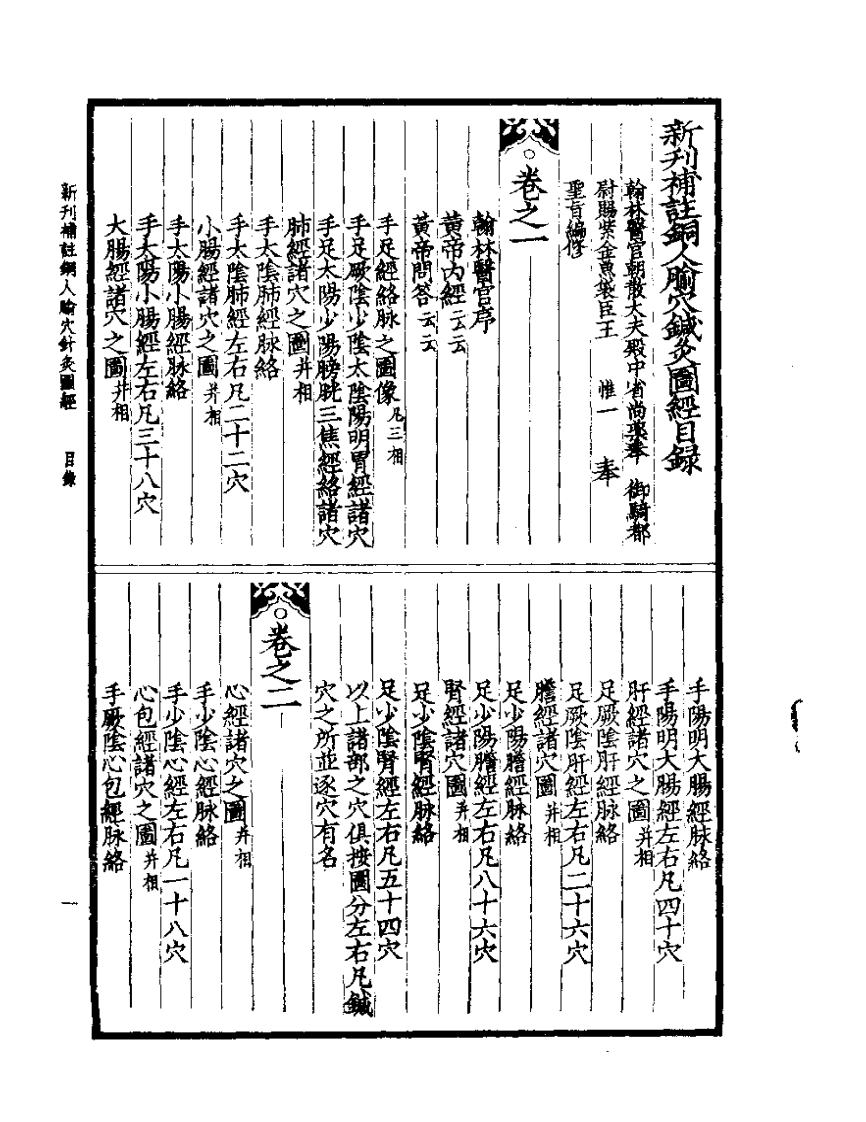 新刋補註銅人腧穴鍼灸圖經目録
翰林醫官朝散大夫殿中省尚藥奉 御騎都
尉賜紫金魚袋臣王 惟一 奉
聖旨編修
卷之一
翰林醫官序
黃帝內經云云
黃帝問答云云
手足經絡脉之圖像凡三相
手足厥陰少陰太陰陽明胃經諸穴
手足太陽少陽膀胱三焦經絡諸穴
肺經諸穴之圖并相
手太陰肺經脉絡
手太陰肺經左右凡二十二穴
小腸經諸穴之圖并相
手太陽小腸經脉絡
手太陽小腸經左右凡三十八穴
大腸經諸穴之圖并相
手陽明大腸經脉絡
手陽明大腸經左右凡四十穴
肝經諸穴之圖并相
足厥陰肝經脉絡
足厥陰肝經左右凡二十六穴
膽經諸穴圖并相
足少陽膽經脉絡
足少陽膽經左右凡八十六穴
腎經諸穴圖并相
足少陰腎經脉絡
足少陰腎經左右凡五十四穴
以上諸部之穴俱按圖分左右凡鍼
穴之所並逐穴有名
卷之二
心經諸穴之圖并相
手少陰心經脉絡
手少陰心經左右凡一十八穴
心包經諸穴之圖并相
手厥陰心包經脉絡
新刊補註銅人腧穴針灸圖經 目錄
一